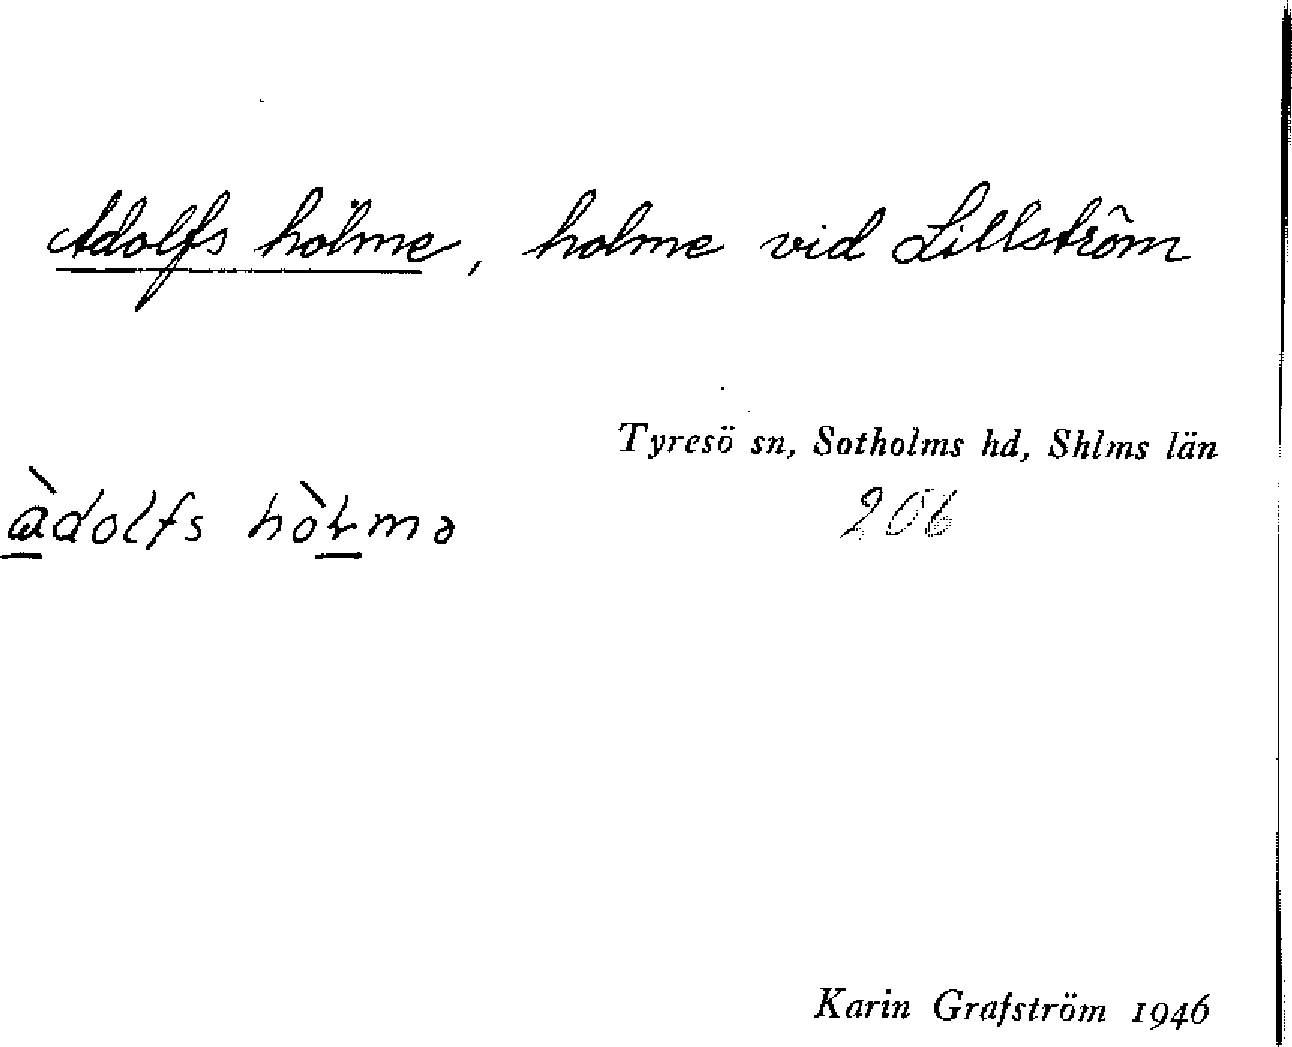 Adolfs holme, holme vid Lillström
Tyresö sn, Sotholms hd, Shlms län
àdolfs hòɫmə
206
Karin Grafström 1946